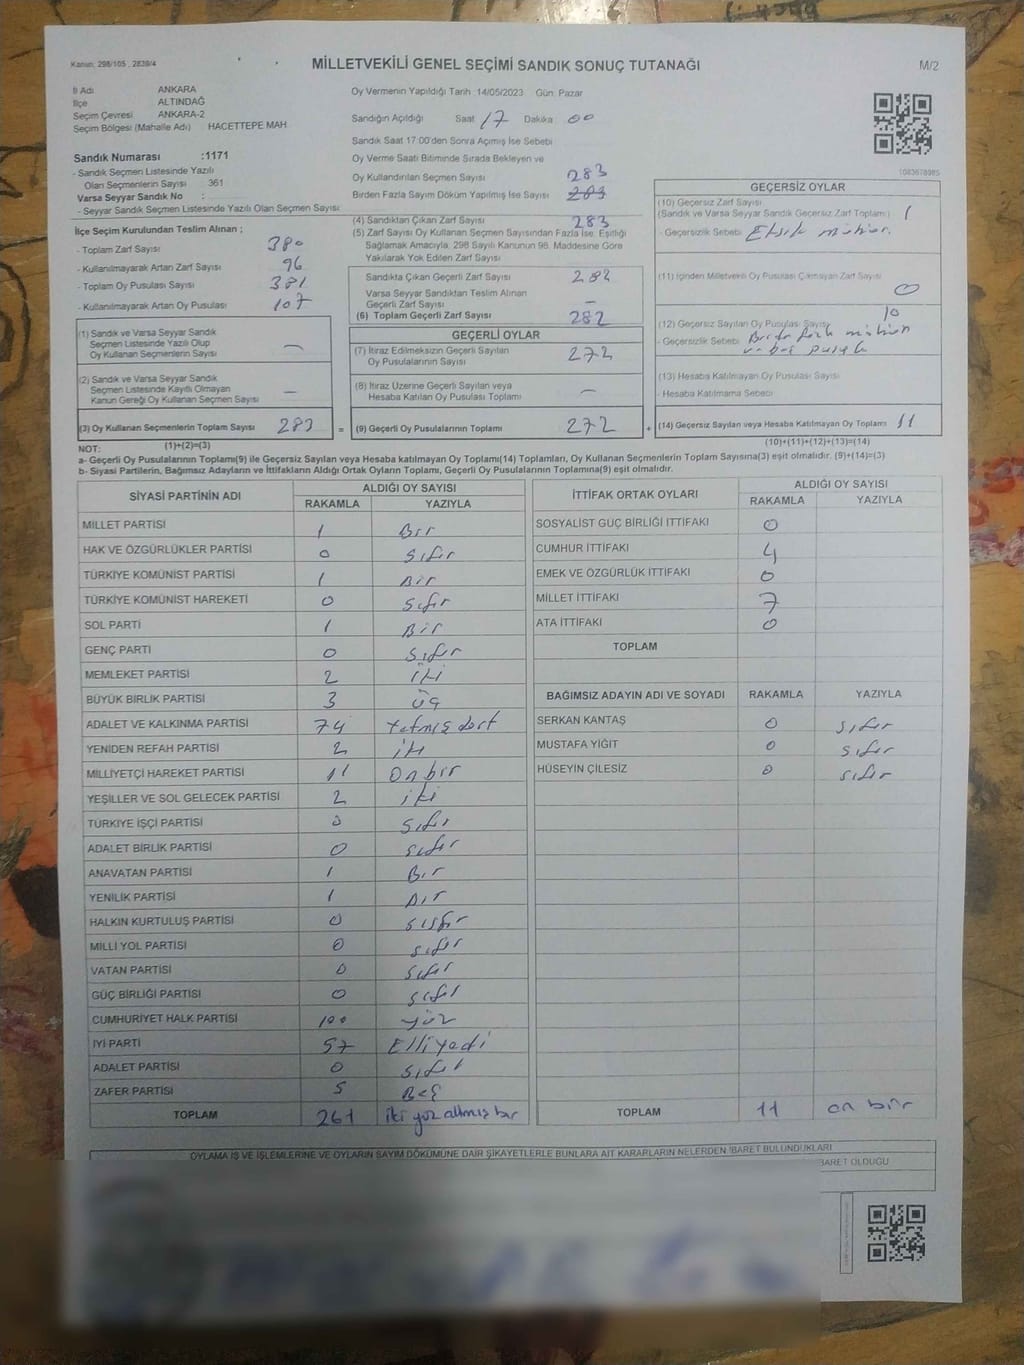 Kanun: 298/105 , 2839/4
MİLLETVEKİLİ GENEL SEÇİMİ SANDIK SONUÇ TUTANAĞI
M/2
İl Adı ANKARA
İlçe ALTINDAĞ
Seçim Çevresi ANKARA-2
Seçim Bölgesi (Mahalle Adı) HACETTEPE MAH
Sandık Numarası :1171
- Sandık Seçmen Listesinde Yazılı
Olan Seçmenlerin Sayısı 361
Varsa Seyyar Sandık No :
- Seyyar Sandık Seçmen Listesinde Yazılı Olan Seçmen Sayısı:
İlçe Seçim Kurulundan Teslim Alınan ;
- Toplam Zarf Sayısı 380
- Kullanılmayarak Artan Zarf Sayısı 96
- Toplam Oy Pusulası Sayısı 381
- Kullanılmayarak Artan Oy Pusulası 107
(1) Sandık ve Varsa Seyyar Sandık
Seçmen Listesinde Yazılı Olup
Oy Kullanan Seçmenlerin Sayısı —
(2) Sandık ve Varsa Seyyar Sandık
Seçmen Listesinde Kayıtlı Olmayan
Kanun Gereği Oy Kullanan Seçmen Sayısı —
(3) Oy Kullanan Seçmenlerin Toplam Sayısı 283 =
(1)+(2)=(3)
Oy Vermenin Yapıldığı Tarih :14/05/2023 Gün: Pazar
Sandığın Açıldığı Saat 17 Dakika 00
Sandık Saat 17:00'den Sonra Açılmış İse Sebebi
Oy Verme Saati Bitiminde Sırada Bekleyen ve
Oy Kullandırılan Seçmen Sayısı 283
Birden Fazla Sayım Döküm Yapılmış İse Sayısı 283
(4) Sandıktan Çıkan Zarf Sayısı 283
(5) Zarf Sayısı Oy Kullanan Seçmen Sayısından Fazla İse, Eşitliği
Sağlamak Amacıyla, 298 Sayılı Kanunun 98. Maddesine Göre
Yakılarak Yok Edilen Zarf Sayısı
Sandıkta Çıkan Geçerli Zarf Sayısı 282
Varsa Seyyar Sandıktan Teslim Alınan
Geçerli Zarf Sayısı —
(6) Toplam Geçerli Zarf Sayısı 282
GEÇERLİ OYLAR
(7) İtiraz Edilmeksizin Geçerli Sayılan
Oy Pusulalarının Sayısı 272
(8) İtiraz Üzerine Geçerli Sayılan veya
Hesaba Katılan Oy Pusulası Toplamı —
(9) Geçerli Oy Pusulalarının Toplamı 272 +
1083678985
GEÇERSİZ OYLAR
(10) Geçersiz Zarf Sayısı
(Sandık ve Varsa Seyyar Sandık Geçersiz Zarf Toplamı) 1
- Geçersizlik Sebebi Eksik mühür.
(11) İçinden Milletvekili Oy Pusulası Çıkmayan Zarf Sayısı
0
(12) Geçersiz Sayılan Oy Pusulası Sayısı 10
- Geçersizlik Sebebi
(13) Hesaba Katılmayan Oy Pusulası Sayısı
- Hesaba Katılmama Sebebi
(14) Geçersiz Sayılan veya Hesaba Katılmayan Oy Toplamı 11
(10)+(11)+(12)+(13)=(14)
NOT:
a- Geçerli Oy Pusulasının Toplamı(9) ile Geçersiz Sayılan veya Hesaba katılmayan Oy Toplamı(14) Toplamları, Oy Kullanan Seçmenlerin Toplam Sayısına(3) eşit olmalıdır. (9)+(14)=(3)
b- Siyasi Partilerin, Bağımsız Adayların ve İttifakların Aldığı Ortak Oyların Toplamı, Geçerli Oy Pusulalarının Toplamına(9) eşit olmalıdır.
SİYASİ PARTİNİN ADI ALDIĞI OY SAYISI
RAKAMLA YAZIYLA
MİLLET PARTİSİ 1 Bir
HAK VE ÖZGÜRLÜKLER PARTİSİ 0 sıfır
TÜRKİYE KOMÜNİST PARTİSİ 1 Bir
TÜRKİYE KOMÜNİST HAREKETİ 0 sıfır
SOL PARTİ 1 Bir
GENÇ PARTİ 0 sıfır
MEMLEKET PARTİSİ 2 iki
BÜYÜK BİRLİK PARTİSİ 3 üç
ADALET VE KALKINMA PARTİSİ 74 Yetmiş dört
YENİDEN REFAH PARTİSİ 2 iki
MİLLİYETÇİ HAREKET PARTİSİ 11 On bir
YEŞİLLER VE SOL GELECEK PARTİSİ 2 iki
TÜRKİYE İŞÇİ PARTİSİ 0 sıfır
ADALET BİRLİK PARTİSİ 0 sıfır
ANAVATAN PARTİSİ 1 Bir
YENİLİK PARTİSİ 1 Bir
HALKIN KURTULUŞ PARTİSİ 0 sısfır
MİLLİ YOL PARTİSİ 0 sıfır
VATAN PARTİSİ 0 sıfır
GÜÇ BİRLİĞİ PARTİSİ 0 sıfır
CUMHURİYET HALK PARTİSİ 100 yüz
İYİ PARTİ 57 Elliyedi
ADALET PARTİSİ 0 sıfır
ZAFER PARTİSİ 5 Beş
TOPLAM 261 iki yüz altmış bir
İTTİFAK ORTAK OYLARI ALDIĞI OY SAYISI
RAKAMLA YAZIYLA
SOSYALİST GÜÇ BİRLİĞİ İTTİFAKI 0
CUMHUR İTTİFAKI 4
EMEK VE ÖZGÜRLÜK İTTİFAKI 0
MİLLET İTTİFAKI 7
ATA İTTİFAKI 0
TOPLAM
BAĞIMSIZ ADAYIN ADI VE SOYADI RAKAMLA YAZIYLA
SERKAN KANTAŞ 0 sıfır
MUSTAFA YİĞİT 0 sıfır
HÜSEYİN ÇİLESİZ 0 sıfır
TOPLAM 11 on bir
OYLAMA İŞ VE İŞLEMLERİNE VE OYLARIN SAYIM DÖKÜMÜNE DAİR ŞİKAYETLERLE BUNLARA AİT KARARLARIN NELERDEN İBARET BULUNDUKLARI
BARET OLDUĞU